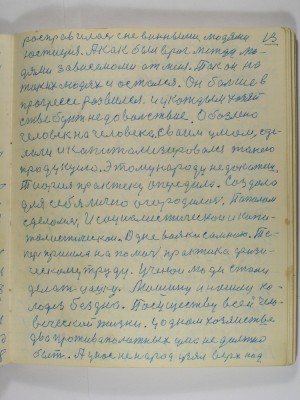 13
расправилась с невинными людями
юстиция. А как был врог между лю-
дями зависемоми от мысл. Так он на
тихих людях и остался. Он больше в
прогресе развился. и у каждым хозяй
стве бунт недовольствие. Обозлено
человек на человека. Своим умом, сде-
лали и капитализировался такою
продукцию. Этому народу недохатик.
Теория практику опередила. Создано
для себя лично огородилось. Потолом
сделоми, И социалистическою и капи-
толистическою. Одне вовки со мною. Те-
перь пришла на помоч практика физи-
ческому труду. Ученои люди стали
делать цауку. Машину и химию ко-
лодез бездны. По существу всей чело-
веческой жизни. У одном хозяистве
два противоположных ума не должно
быть. А у нас не народ узял верх над